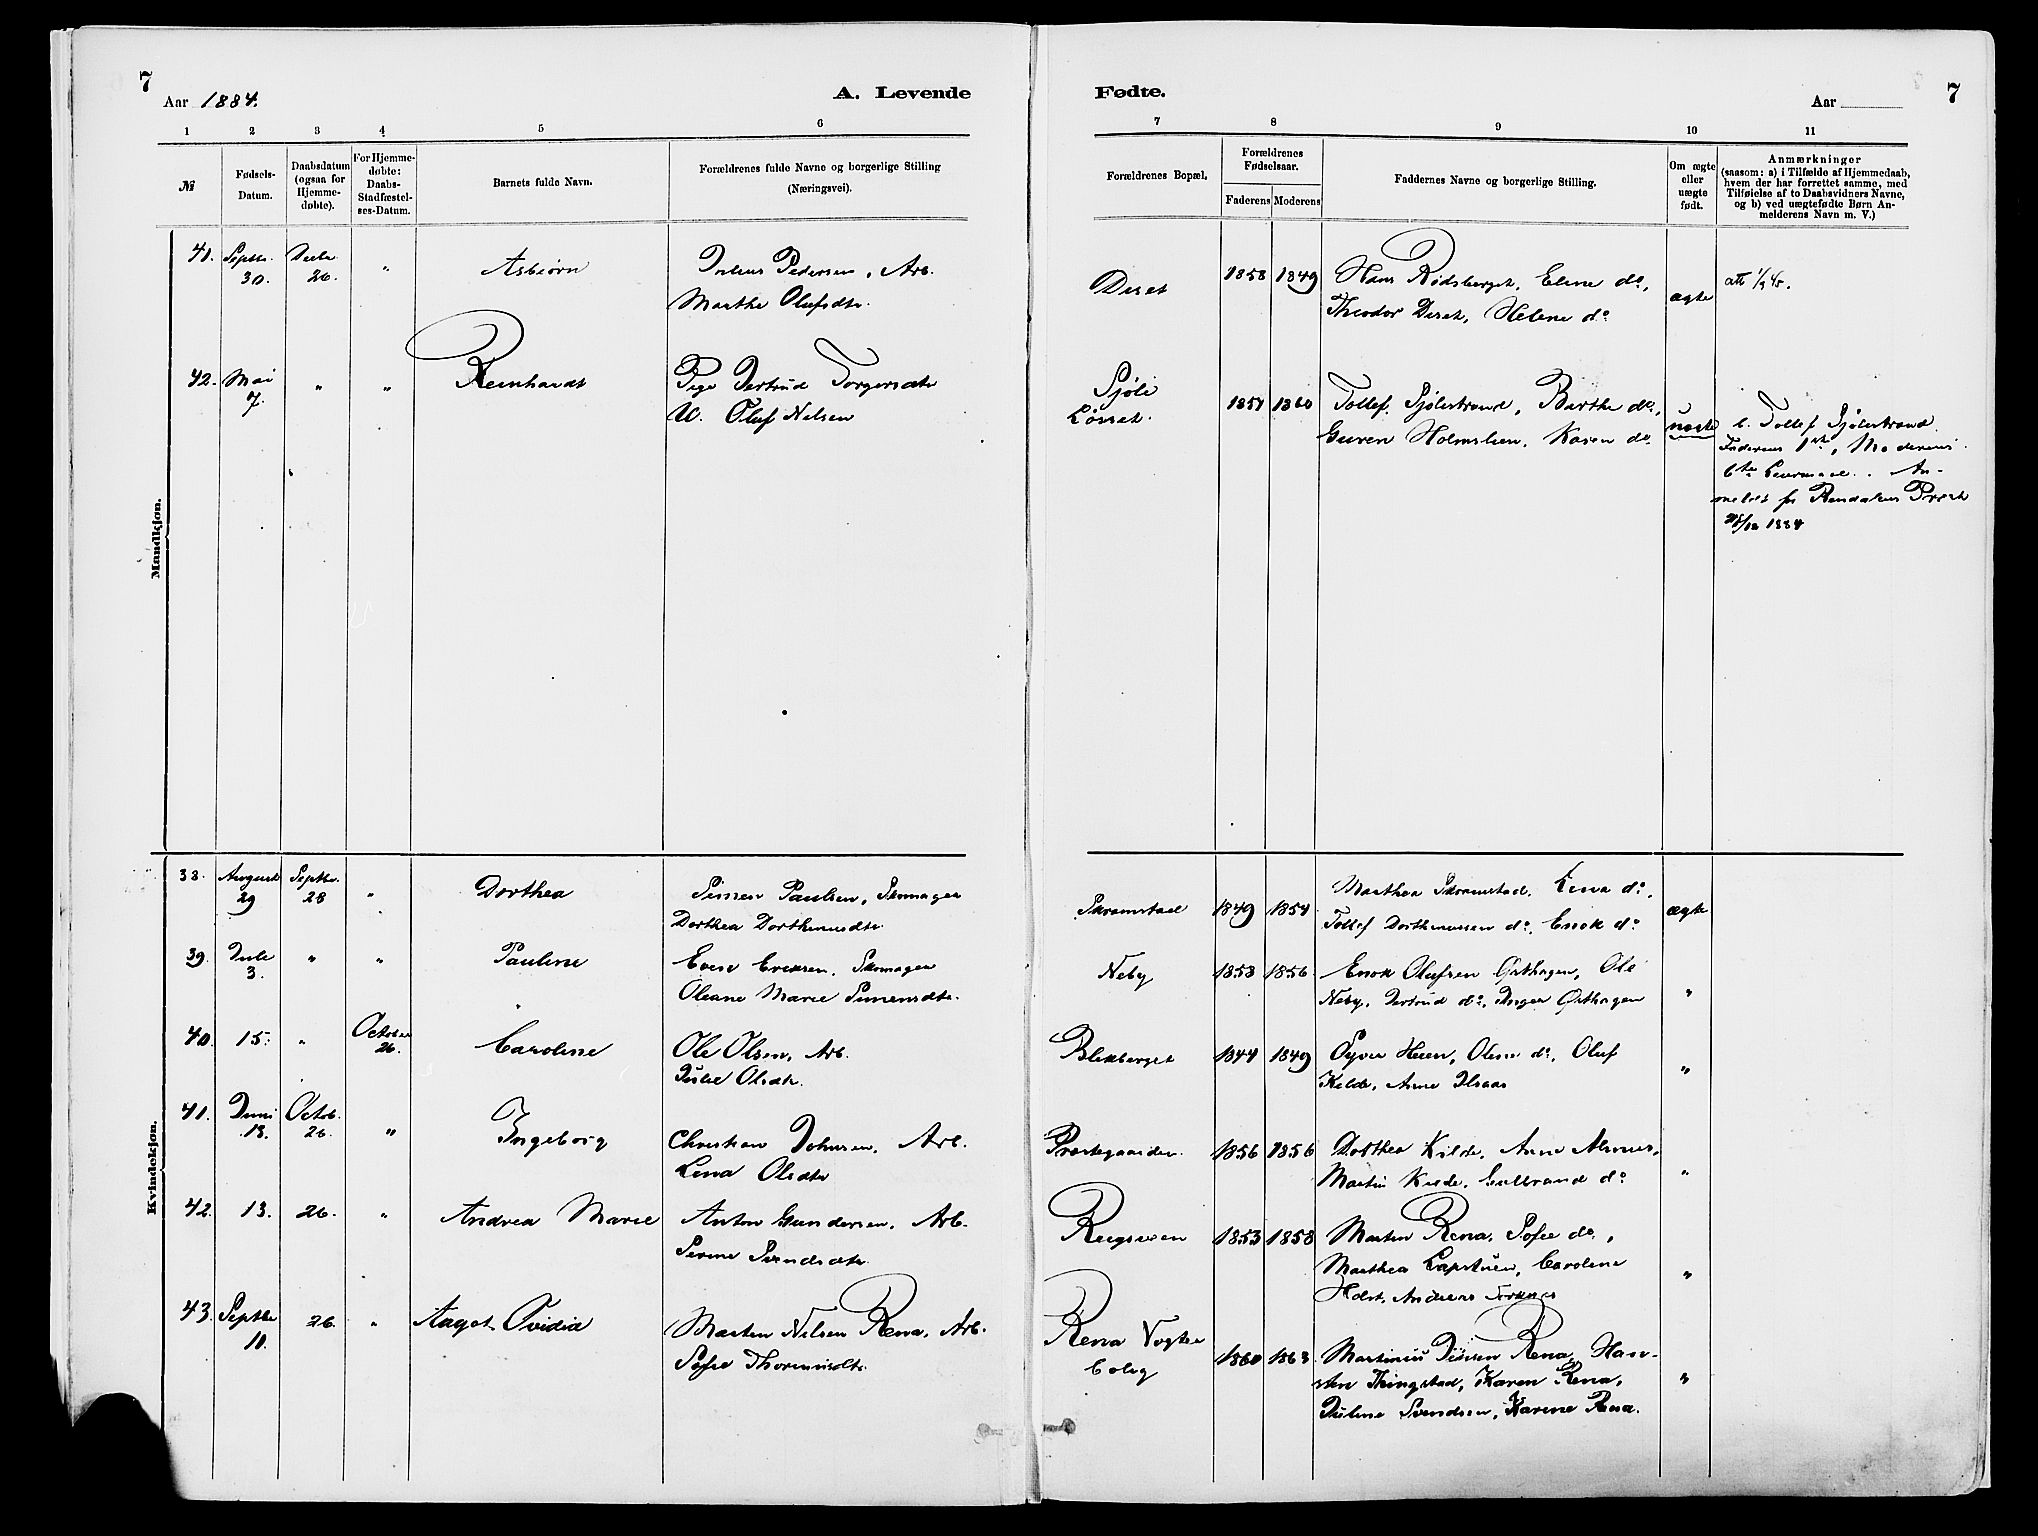 7
Aar 1884.
A. Levende
Fødte.
Aar
7
1 2 3 4 5 6 7 8 9 10 11
№
Fødsels-
Datum.
Daabsdatum
(ogsaa for
Hjemme-
døbte).
For Hjemme-
døbte:
Daabs-
Stadfæstel-
ses-Datum.
Barnets fulde Navn.
Forældrenes fulde Navne og borgerlige Stilling
(Næringsvei).
Forældrenes Bopæl.
Forældrenes
Fødselsaar.
Faderens Moderens
Faddernes Navne og borgerlige Stilling.
Om ægte
eller
uægte
født.
Anmærkninger
(saasom: a) i Tilfælde af Hjemmedaab,
hvem der har forrettet samme, med
Tilføielse af to Daabsvidners Navne,
og b) ved uægtefødte Børn An-
melderens Navn m. V.)
Mandkjøn.
41. Septbr. 30. Decbr. 26. " Asbiørn
Julius Pedersen, Arb.
Marthe Olufsdtr.
Deset 1858 1849
Hans Rødsberget, Eline do,
Theodor Deset, Helene do
ægte
att 1/9 45.
42. Mai 7. " " Reinhardt
Pige Gertrud Torgersdtr
U. Oluf Nelsen
Sjøli
Løsset.
1857 1860
Tollef Sjølistrand, Berthe do,
Guren Holmslien, Karen do
uægte
b. Tollef Sjølistrand.
Faderens 1ste, Moderens
Leiermaal. An-
meldt fr Rendalens Præst
1884
Kvindekjøn.
38. August 29 Septbr. 28 " Dorthea
Simen Paulsen, Skomager
Dorthea Dorthinusdtr.
Skramstad 1849 1854
Marthea Skramstad, Lina do,
Tollef Dorthinussen do, Enok do
ægte
39. Juli 3. " " Pauline
Even Eriksen, Skomager
Oleane Marie Simensdtr.
Neby 1853 1856
Enok Olufsen Østhagen, Ole
Neby, Gertrud do, Inger Østhagen
"
40. 15. " October 26. Caroline
Ole Olsen, Arb.
Julie Olsdtr.
Blikberget 1844 1849
Syver Heen, Oline do, Oluf
Kilde, Anne Ilsaas
"
41. Juni 13. Octob. 26. " Ingeborg
Christian Johnsen, Arb.
Lena Olsdtr
Præstegaarden. 1856 1856
Dorthea Kilde, Anne Alme,
Martin Kilde, Gulbrand do
"
42. 13. 26. " Andrea Marie
Anton Gundersen, Arb.
Serine Svendsdtr.
Rugsveen 1853 1858
Martin Rena, Sofie do,
Marthea Lapstuen, Caroline
Holst, Andreas
"
43. Septbr 10. 26 " Aagot Ovidia
Martin Nilsen Rena, Arb.
Sofie Thorinusdtr.
Rena Vogter
bolig
1860 1863
Martinius Jensen Rena, Han-
sten Kingstad, Karen Rena,
Juline Svendsen, Karine Rena.
"